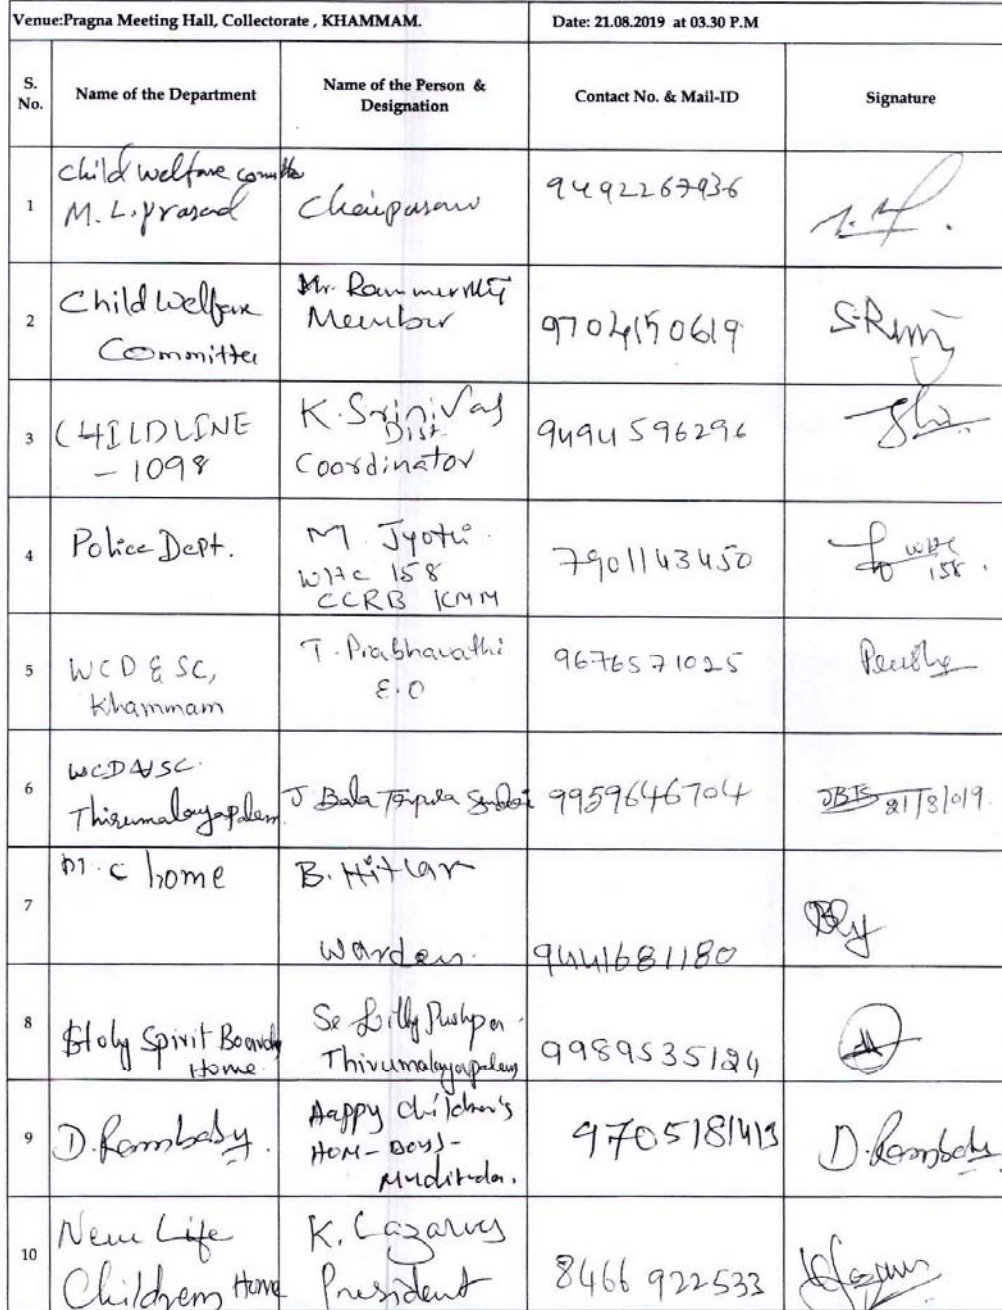 Venue:Pragna Meeting Hall, Collectorate , KHAMMAM. Date: 21.08.2019 at 03.30 P.M
S. No. Name of the Department Name of the Person & Designation Contact No. & Mail-ID Signature
1 Child welfare committe M. L. prasad Chairperson 9492267936
2 Child Welfare Committee Mr. Rammurthy Member 9704150619
3 CHILDLINE - 1098 K. Srinivas Dist. Coordinator 9494596296
4 Police Dept. M. Jyothi WHC 158 CCRB KMM 7901143450 WHC 158
5 WCD & SC, Khammam T. Prabhavathi E.O 9676571025
6 WCD & SC. Thirumalayapalem J. Bala Tripura 9959646704 JBTS 21/8/019
7 M.C home B. Hitlar Warden. 9441681180
8 Holy Spirit Boarding Home. Sr Lilly Pushpa Thirumalayapalem 9989535124
9 D. Rambabu. Happy Children's HOM-BOYS- 9705181413 D. Rambabu
10 New Life Childrens Home K. Lazarus President 8466 922533